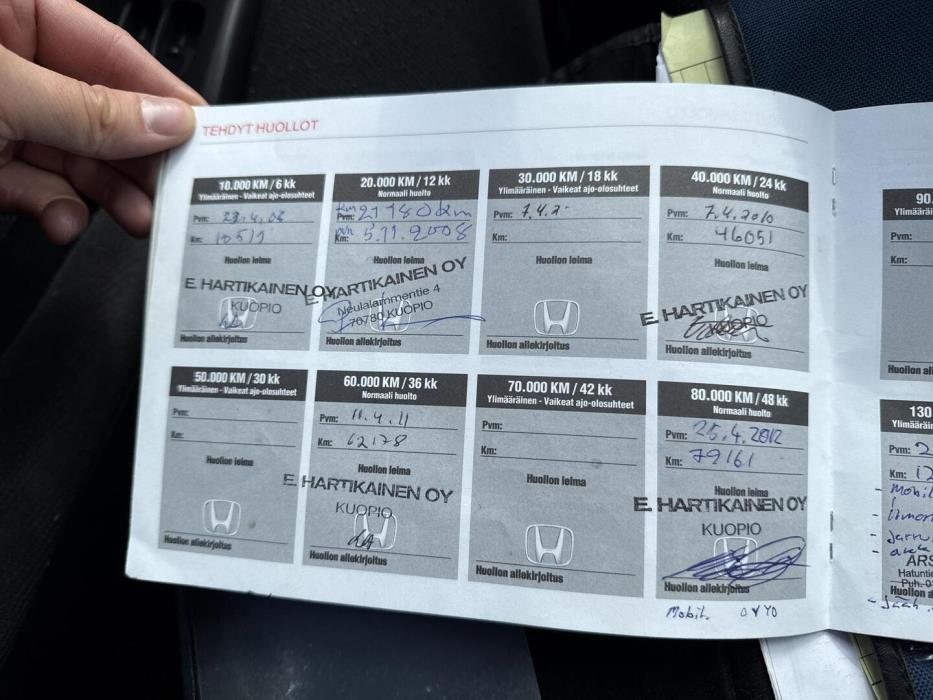 TEHDYT HUOLLOT
10.000 KM / 6 kk
Ylimääräinen - Vaikeat ajo-olosuhteet
Pvm:
Km:
Huollon leima
E. HARTIKAINEN OY
KUOPIO
Huollon allekirjoitus
20.000 KM / 12 kk
Normaali huolto
Pvm: 21780 km
Km: 5.11.2008
E. HARTIKAINEN OY
Neulalammentie 4
70780 KUOPIO
Huollon allekirjoitus
30.000 KM / 18 kk
Ylimääräinen - Vaikeat ajo-olosuhteet
Pvm: 7.4.2
Km:
Huollon leima
Huollon allekirjoitus
40.000 KM / 24 kk
Normaali huolto
Pvm: 7.4.2010
Km: 46051
Huollon leima
E. HARTIKAINEN OY
KUOPIO
Huollon allekirjoitus
50.000 KM / 30 kk
Ylimääräinen - Vaikeat ajo-olosuhteet
Pvm:
Km:
Huollon leima
Huollon allekirjoitus
60.000 KM / 36 kk
Normaali huolto
Pvm: 11.4.11
Km: 62178
Huollon leima
E. HARTIKAINEN OY
KUOPIO
Huollon allekirjoitus
70.000 KM / 42 kk
Ylimääräinen - Vaikeat ajo-olosuhteet
Pvm:
Km:
Huollon leima
Huollon allekirjoitus
80.000 KM / 48 kk
Normaali huolto
Pvm: 25.4.2012
Km: 79161
Huollon leima
E. HARTIKAINEN OY
KUOPIO
Huollon allekirjoitus
Mobil. 0W40
90.
Pvm:
Km:
130
Pvm: 2
Km: 12